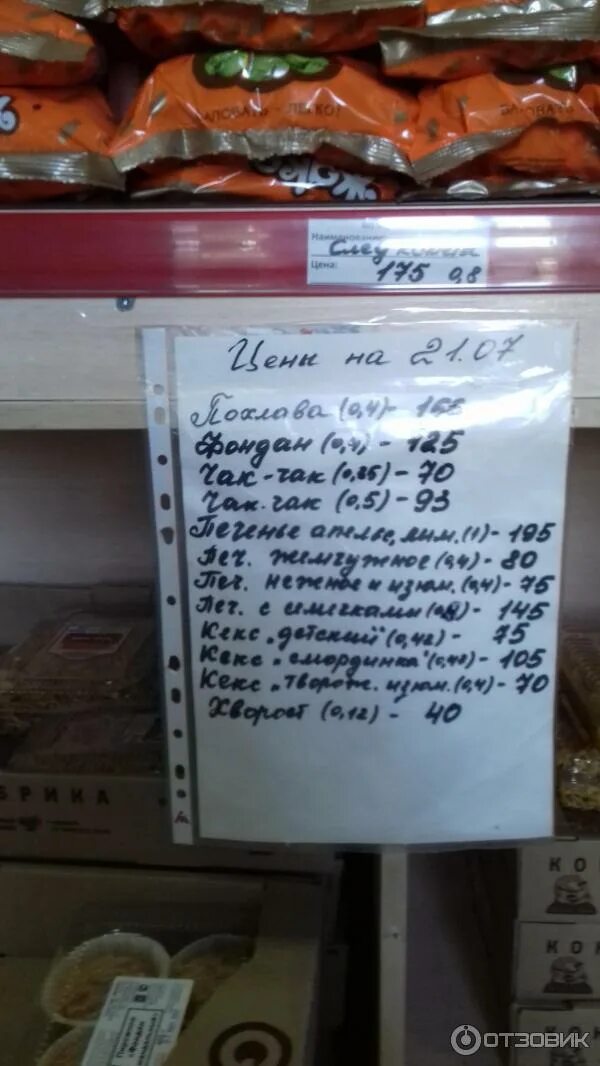 БАЛОВАТЬ - ЛЕГКО!
БАЛОВАТЬ
Наименование
Цена:
175 0,8
Цены на 21.07
Похлава (0,4) -
Фондан (0,4) - 125
Чак-чак (0,25) - 70
Чак-чак (0,5) - 93
Печенье апельс, лим. (1) - 195
Печ. жемчужное (0,4) - 80
Печ. нежное и изюм. (0,4) - 75
Печ. с семечками - 145
Кекс „детский" (0,42) - 75
Кекс „смординка" (0,42) - 105
Кекс „творож. изюм. (0,4) - 70
Хворост (0,12) - 40
БРИКА
КО
КОК
Пирожное
«Фондан
ОТЗОВИК